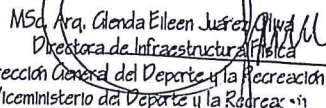 MSc. Arq. Glenda Eileen Juárez
Directora de Infraestructura Física
rección General del Deporte y la Recreación
Viceministerio del Deporte y la Recrea